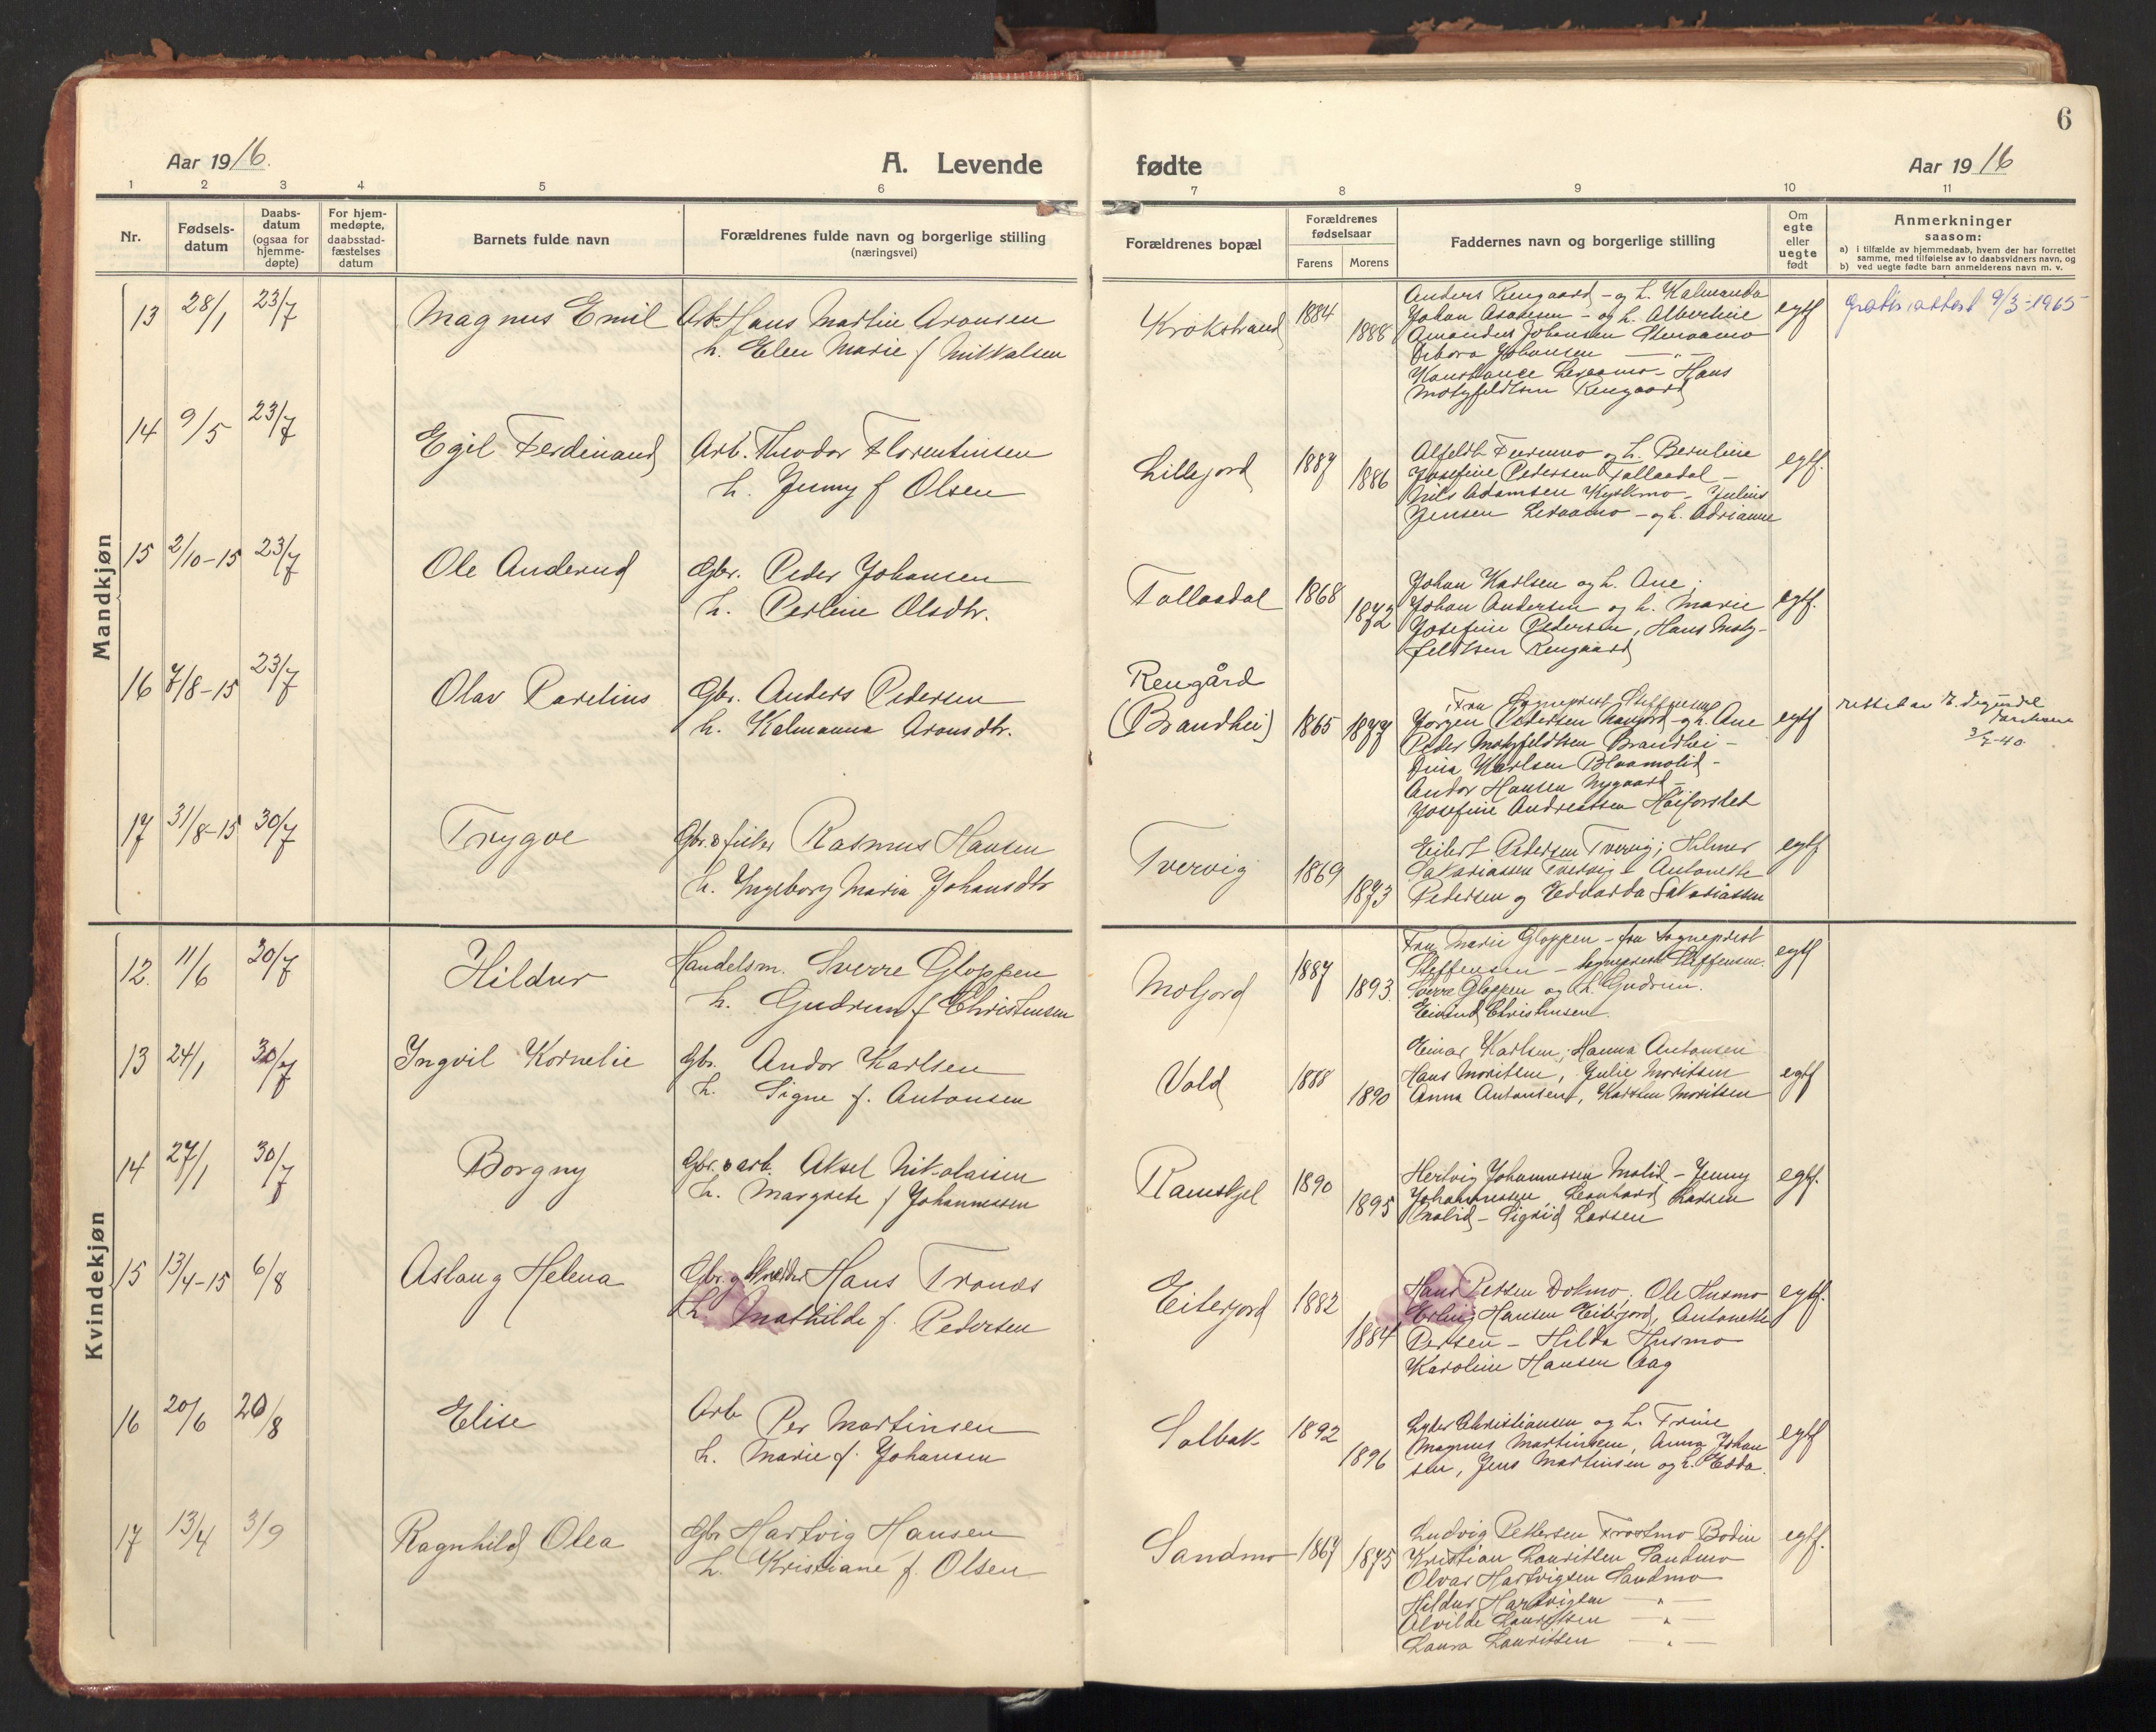 6
Aar 1916.
A. Levende
fødte
Aar 1916
1 2 3 4 5 6 7 8 9 10 11
Nr.
Fødsels-
datum
Daabs-
datum
(ogsaa for
hjemme-
døpte)
For hjem-
medøpte,
daabsstad-
fæstelses
datum
Barnets fulde navn
Forældrenes fulde navn og borgerlige stilling
(næringsvei)
Forældrenes bopæl
Forældrenes
fødselsaar
Farens
Morens
Faddernes navn og borgerlige stilling
Om
egte
eller
uegte
født
Anmerkninger
saasom:
a) i tilfælde av hjemmedaab, hvem der har forrettet
samme, med tilføielse av to daabsvidners navn, og
b) ved uegte fødte barn anmelderens navn m. v.
Mandkjøn
13 28/1 23/7 Magnus Emil
Arb. Hans Martin Aronsen
h. Elen Marie f Mikkalsen
Krokstrand 1884 1888
Anders Rengaard - og h. Kalmanda
Johan - og h. Albertine
Johansen
Debora Johansen — " —
Hans
Motzfeldtsen Rengaard
egtf
gratis attest 9/3-1965
14 9/5 23/7 Egil Ferdinand
Arb. Theodor Florentinsen
h. Jenny f Olsen
Lillejord 1887 1886
og h. Berntine
Josefine Pedersen Tollaadal -
Nils Adamsen - Julius
Jensen - og h. Adrianne
egtf.
15 2/10-15 23/7 Ole Anderud
Gbr. Peder Johansen
h. Perline Olsdtr.
Tollaadal 1868 1872
Johan Karlsen og h. Ane.
Johan Andersen og h. Marie
Josefine Pedersen, Hans Motz-
feldtsen Rengaard
egtf.
16 7/8-15 23/7 Olav Parelius
Gbr. Anders Pedersen
h. Kalmanna Aronsdtr.
Rengård
(Brandhei) 1865 1877
Fru Sogneprest Steffensen
Jørgen Pedersen - og h. Ane
Peder Motzfeldtsen Brandhei -
Dina Karlsen Blaamolid -
Andor Hansen Nygaard -
Josefine Andreassen Høiforslet
egtf
3/7-40.
17 31/8-15 30/7 Trygve
Gbr. & fisker Rasmus Hansen
h. Ingeborg Maria Johansdtr
Tvervig 1869 1873
Eilert Pedersen Tvervig, Hilmer
Sakariassen Tvervig - Antonette
Pedersen og Edvarda Sakariassen
egtf
Kvindekjøn
12. 11/6 30/7 Hildur
Handelsm. Sverre Gloppen
h. Gudrun f Christensen
Moljord 1887 1893.
Fru Marie Gloppen - fru Sogneprest
Steffensen - Sogneprest Steffensen.
Sverre Gloppen og h. Gudrun.
Eivind Christensen.
egtf
13 24/1 30/7 Ingvil Kornelie
Gbr. Andor Karlsen
h. Signe f. Antonsen
Vold 1888 1890
Einar Karlsen, Hanna Antonsen
Hans Moritsen, Julie Moritsen
Anna Antonsen, Karsten Moritsen
egtf
14 27/1 30/7 Borgny
Gbr. & arb. Aksel Nikolaisen
h. Margrete f Johannessen
Ramskjel 1890 1895
Hertvig Johannessen Molid - Jenny
Johannessen, Leonhard Larsen
Molid - Sigrid Larsen
egtf.
15 13/4-15 6/8 Aslaug Helena
Gbr. g Skrædder Hans Tronds
h. Mathilde f. Pedersen
Eiterjord 1882 1884
Hans Petsen Dokmo, Ole Husmo
Erling Hansen Eiterjord, Antonette
Persen - Hilda Husmo
Karoline Hansen Aag
egtf.
16 20/6 20/8 Elise
Arb Per Martinsen
h. Marie f. Johansen
Solbak 1892 1896
Christiansen og h. Trine
Magnus Martinsen, Anna Johan
sen, Jens Martinsen og h. Edda.
egtf
17 13/4 3/9 Ragnhild Olea
Gbr Hartvig Hansen
h. Kristiane f. Olsen
Sandmo 1867 1875
Ludvig Pettersen Bodin
Kristian Lauritsen Sandmo
Olvar Hartvigsen Sandmo
Hildur Hartvigsen — " —
Alvilde Lauritsen — " —
Laura Lauritsen — " —
egtf.